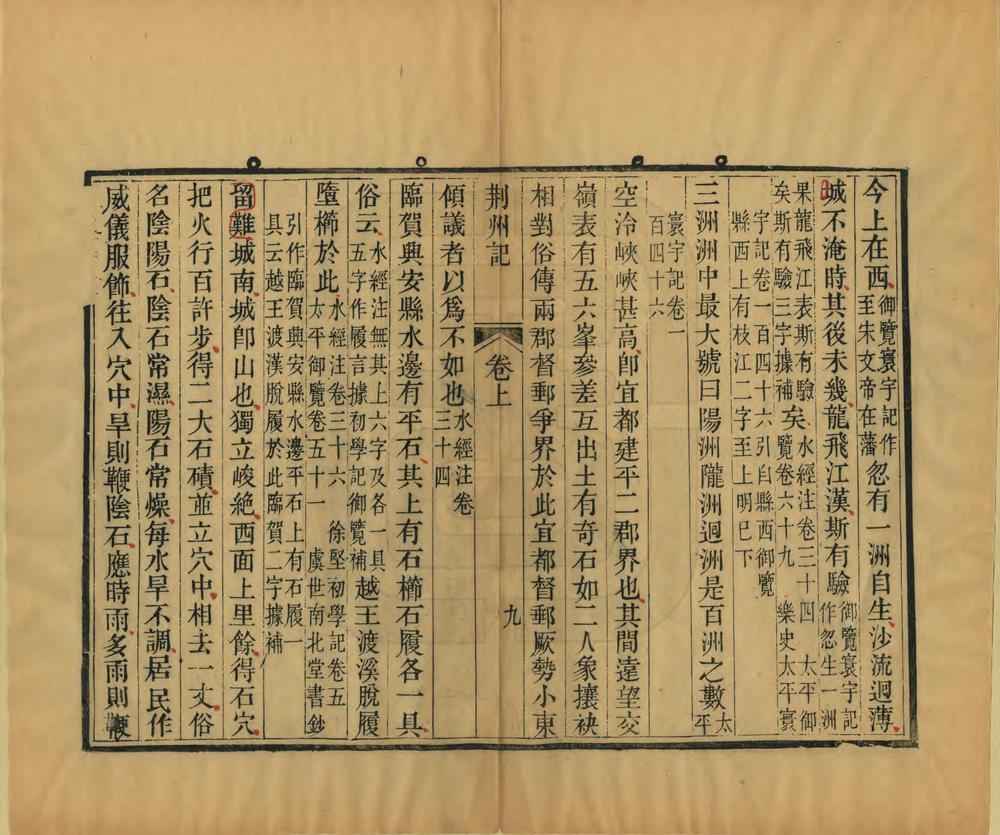 今上在西御覽寰宇記作至宋文帝在藩忽有一洲自生沙流迴薄
城不淹時其後未幾龍飛江漢斯有驗御覽寰宇記作忽生一洲
果龍飛江表斯有驗矣斯有驗三字據補矣水經注卷三十四　太平御覽卷六十九　樂史太平寰
宇記卷一百四十六引自縣西御覽縣西上有枝江二字至上明已下
三洲洲中最大號曰陽洲隴洲迴洲是百洲之數太平
寰宇記卷一百四十六
空泠峽峽甚高卽宜都建平二郡界也其間遠望交
嶺表有五六峯參差互出土有奇石如二人象攘袂
相對俗傳兩郡督郵爭界於此宜都督郵厥勢小東
荆州記
卷上
九
傾議者以爲不如也水經注卷三十四
臨賀興安縣水邊有平石其上有石櫛石履各一具
俗云水經注無其上六字及各一具五字作履言據初學記御覽補越王渡溪脫履
墮櫛於此水經注卷三十六　徐堅初學記卷五　太平御覽卷五十一　虞世南北堂書鈔
引作臨賀興安縣水邊平石上有石履一具云越王渡漢脫履於此臨賀二字據補
留難城南城卽山也獨立峻絶西面上里餘得石穴
把火行百許步得二大石磧並立穴中相去一丈俗
名陰陽石陰石常濕陽石常燥每水旱不調居民作
威儀服飾往入穴中旱則鞭陰石應時雨多雨則鞭